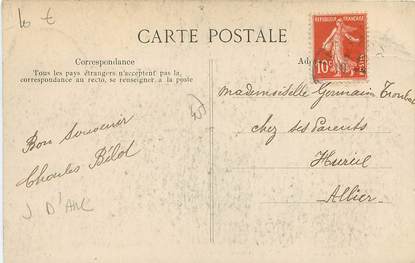 10 €
CARTE POSTALE
Correspondance
Tous les pays étrangers n'acceptent pas la
correspondance au recto, se renseigner à la poste
Ad
RÉPUBLIQUE FRANÇAISE
10c
POSTES
Mademoiselle Germain
chez ses Parents
Huriel
Allier
Bon Souvenir
Charles Bélot
J D'ARC